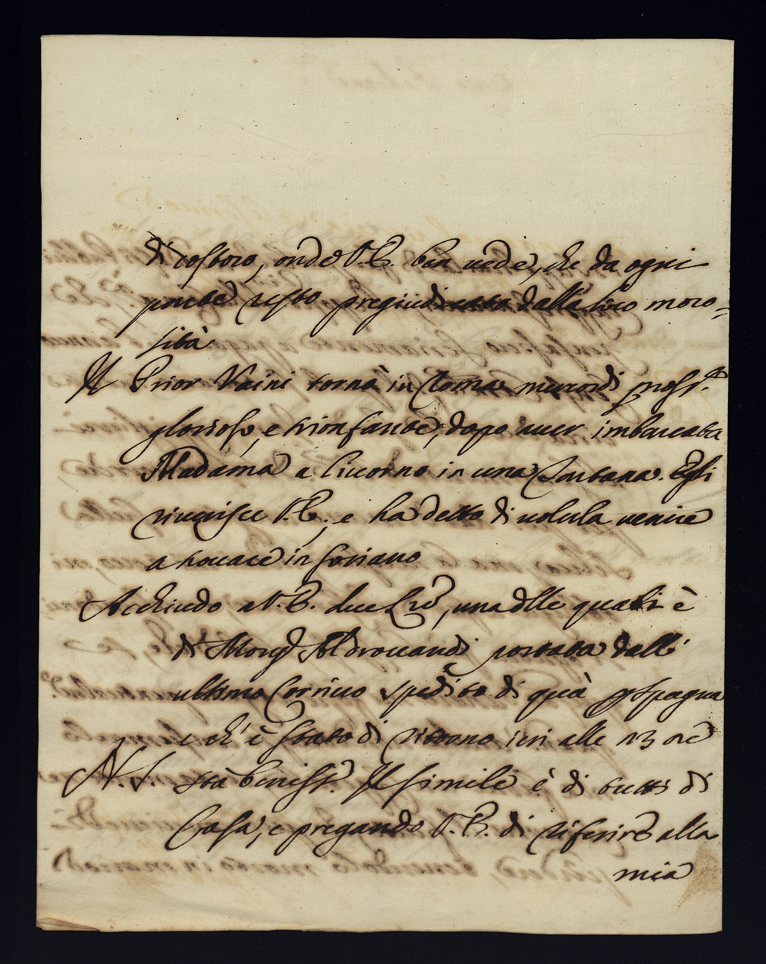 di costoro, onde V. E. ben vede, che da ogni
parte resto pregiudicata dalla loro moro=
sità
Il Prior Vaini tornò in Roma mercordì pross.º
glorioso, e trionfante, dopo aver imbarcata
Madama a Livorno in una Tartana. Egli
riverisce V. E., e ha detto di volerla venire
a trovare in Soriano
Acchiudo a V. E. due Lre, una dlle quali è
di Monsg Aldrovandi portata dall'
ultimo Corriero spedito di quà p Spagna
e ch' è stato di ritorno ieri alle 23 ore
N. S. stà beniss.º Il simile è di tutti di
Casa, e pregando V. E. di riferire alla
mia